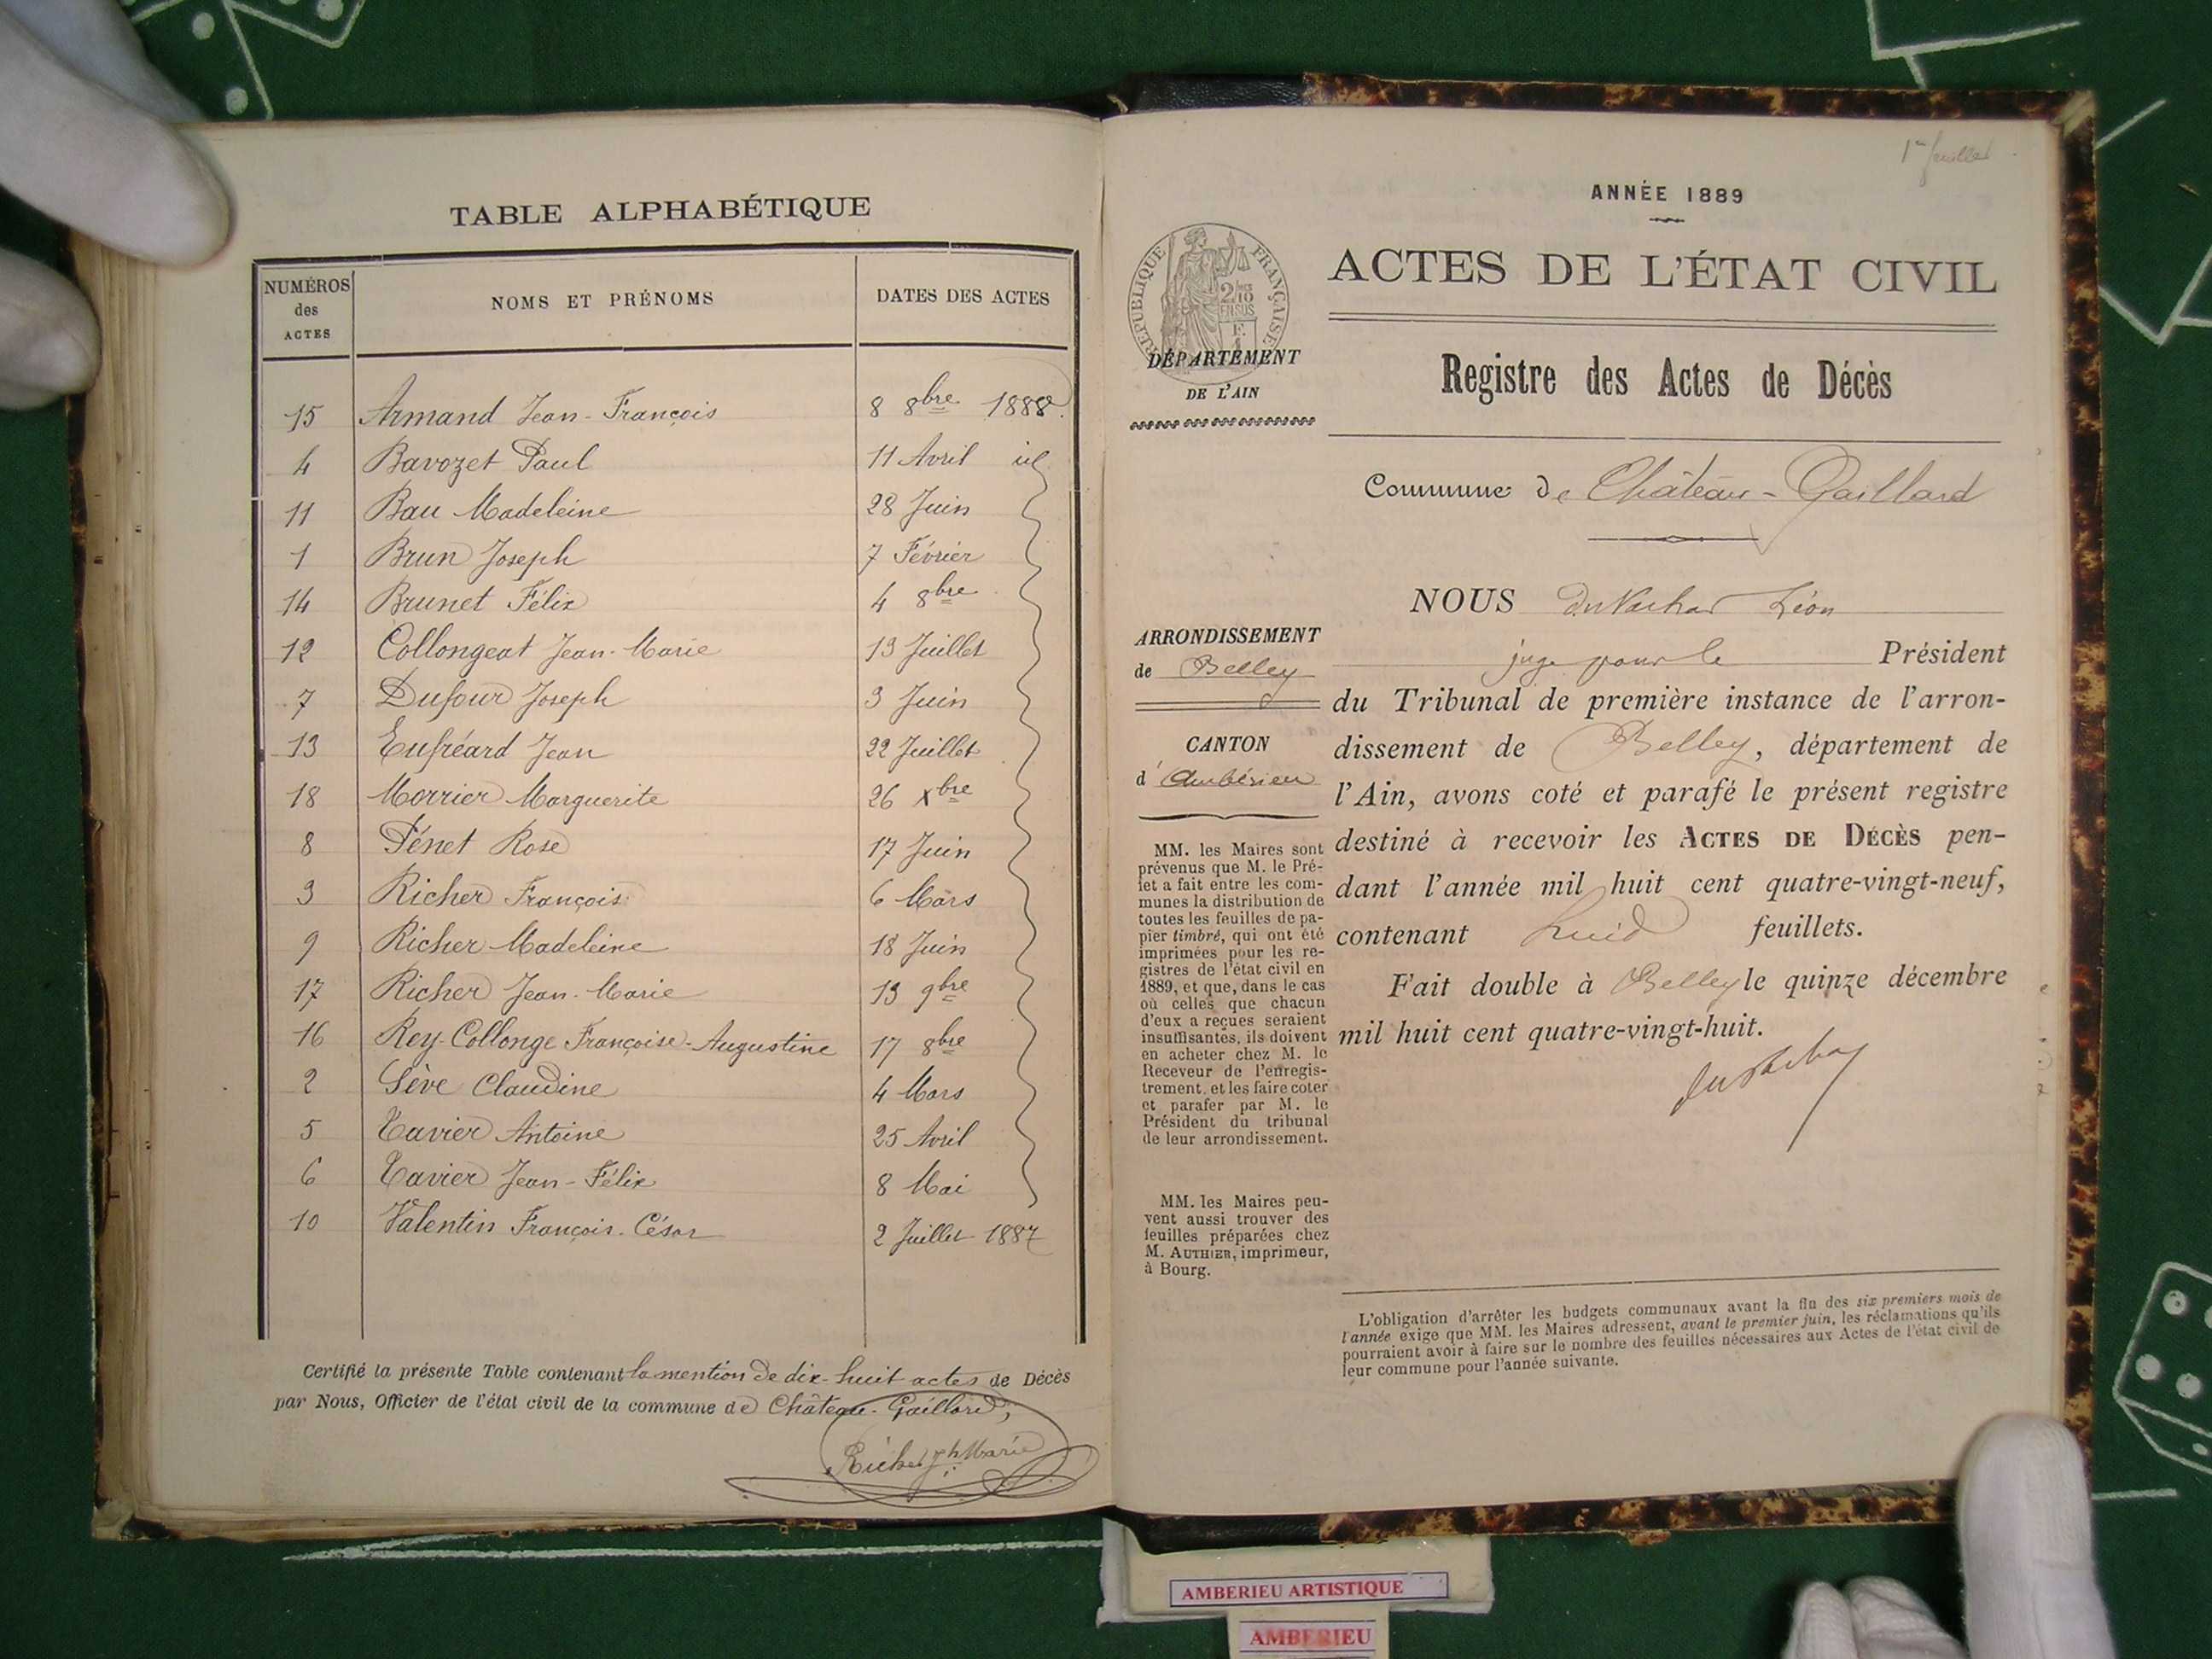 TABLE ALPHABÉTIQUE
NUMÉROS des ACTES NOMS ET PRÉNOMS DATES DES ACTES
15 Armand Jean-François 8 8bre 1888
4 Bavozet Paul 11 Avril id
11 Bau Madeleine 28 Juin
1 Brun Joseph 7 Février
14 Brunet Félix 4 8bre
12 Collongeat Jean-Marie 13 Juillet
7 Dufour Joseph 3 Juin
13 Eufréard Jean 22 Juillet
18 Morrier Marguerite 26 xbre
8 Pénet Rose 17 Juin
3 Richer François 6 Mars
9 Richer Madeleine 18 Juin
17 Richer Jean-Marie 13 9bre
16 Rey-Collonge Françoise-Augustine 17 8bre
2 Sève Claudine 4 Mars
5 Tavier Antoine 25 Avril
6 Tavier Jean-Félix 8 Mai
10 Valentin François-César 2 Juillet 1887
Certifié la présente Table contenant la mention de dix-huit actes de Décès
par Nous, Officier de l'état civil de la commune de Château-Gaillard,
Richer Jh Marie
1er feuillet
ANNÉE 1889
ACTES DE L'ÉTAT CIVIL
RÉPUBLIQUE FRANÇAISE
2/10 EN SUS
DÉPARTEMENT
DE L'AIN
Registre des Actes de Décès
Commune de Château-Gaillard
ARRONDISSEMENT
de Belley
CANTON
d'Ambérieu
MM. les Maires sont
prévenus que M. le Pré-
fet a fait entre les com-
munes la distribution de
toutes les feuilles de pa-
pier timbré, qui ont été
imprimées pour les re-
gistres de l'état civil en
1889, et que, dans le cas
où celles que chacun
d'eux a reçues seraient
insuffisantes, ils doivent
en acheter chez M. le
Receveur de l'enregis-
trement, et les faire coter
et parafer par M. le
Président du tribunal
de leur arrondissement.
MM. les Maires peu-
vent aussi trouver des
feuilles préparées chez
M. AUTHIER, imprimeur,
à Bourg.
NOUS Léon
juge pour le Président
du Tribunal de première instance de l'arron-
dissement de Belley, département de
l'Ain, avons coté et parafé le présent registre
destiné à recevoir les ACTES DE DÉCÈS pen-
dant l'année mil huit cent quatre-vingt-neuf,
contenant huit feuillets.
Fait double à Belley le quinze décembre
mil huit cent quatre-vingt-huit.
L'obligation d'arrêter les budgets communaux avant la fin des six premiers mois de
l'année exige que MM. les Maires adressent, avant le premier juin, les réclamations qu'ils
pourraient avoir à faire sur le nombre des feuilles nécessaires aux Actes de l'état civil de
leur commune pour l'année suivante.
AMBERIEU ARTISTIQUE
AMBERIEU